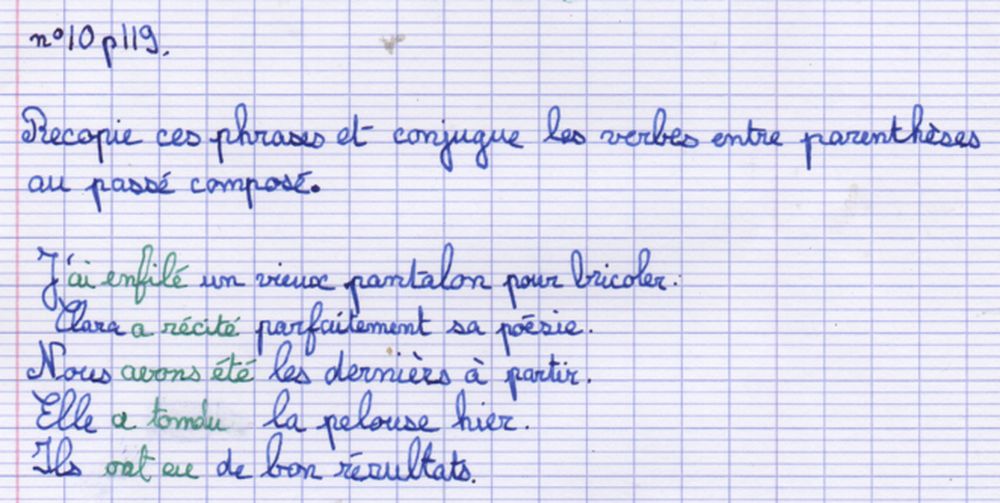 n°10 p119.
Recopie ces phrases et conjugue les verbes entre parenthèses
au passé composé.
J'ai enfilé un vieux pantalon pour bricoler.
Clara a récité parfaitement sa poésie.
Nous avons été les dernièrs à partir.
Elle a tondu la pelouse hier.
Ils ont eu de bon résultats.